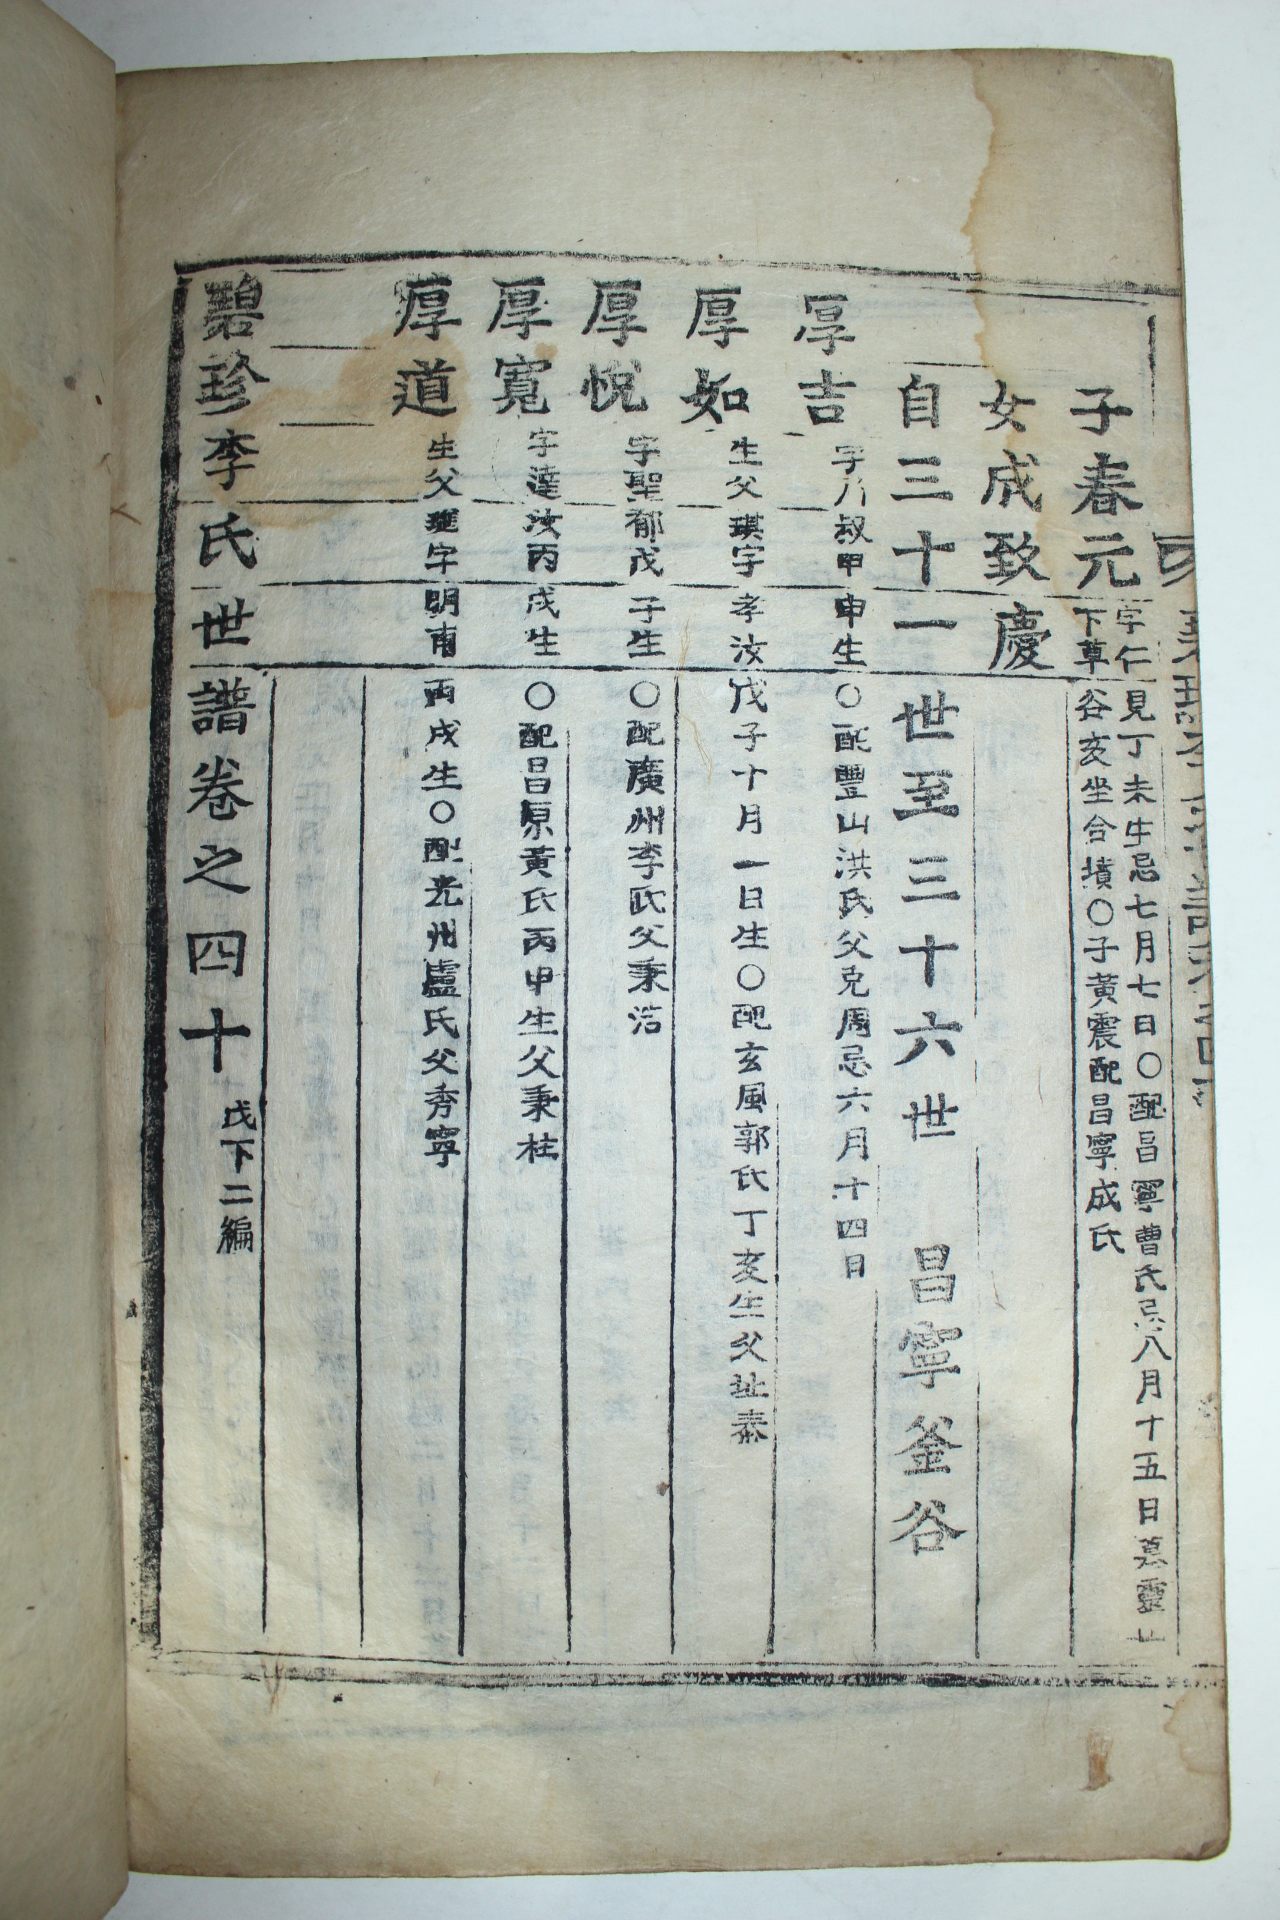 子春元 字仁見丁未生忌七月七日〇配昌寧曹氏忌八月十五日墓靈山
下草谷亥坐合墳〇子黃震配昌寧成氏
女成致慶
自三十一世至三十六世 昌寧釜谷
厚吉 字乃叔甲申生〇配豐山洪氏父克周忌六月十四日
厚如 生父琪字孝汝戊子十月一日生〇配玄風郭氏丁亥生父址泰
厚悅 字聖郁戊子生〇配廣州李氏父秉浩
厚寬 字達汝丙戌生〇配昌原黃氏丙申生父秉柱
厚道 生父字明甫丙戌生〇配光州盧氏父秀寧
碧珍李氏世譜卷之四十 戊下二編